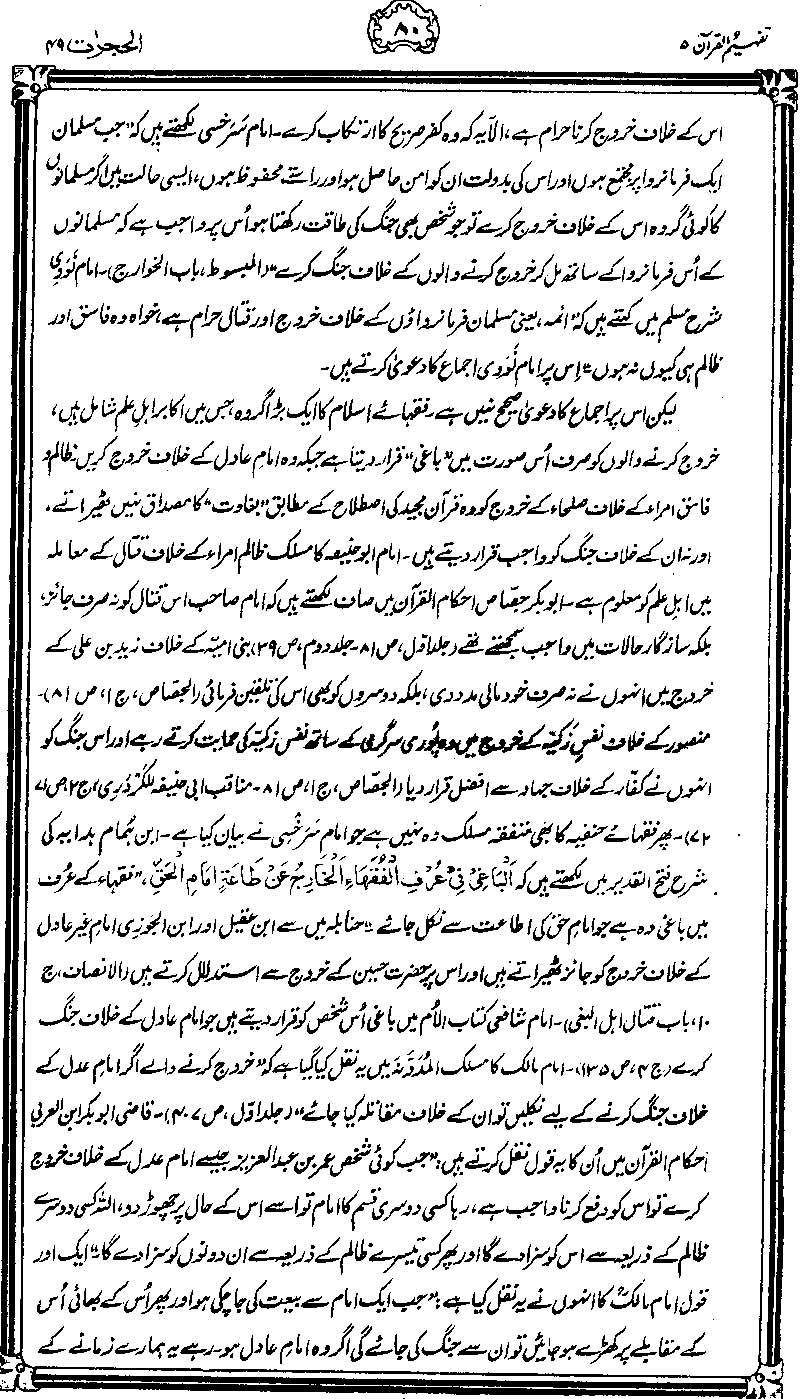 تفہیم القرآن ۵
۸۰
الحجرات ۴۹
اس کے خلاف خروج کرنا حرام ہے، الّا یہ کہ وہ کفر صریح کا ارتکاب کرے۔ امام سَرَخسی لکھتے ہیں کہ "جب مسلمان
ایک فرمانروا پر مجتمع ہوں اور اس کی بدولت ان کو امن حاصل ہو اور راستے محفوظ ہوں، ایسی حالت میں اگر مسلمانوں
کا کوئی گروہ اس کے خلاف خروج کرے تو جو شخص بھی جنگ کی طاقت رکھتا ہو اُس پر واجب ہے کہ مسلمانوں
کے اُس فرمانروا کے ساتھ مل کر خروج کرنے والوں کے خلاف جنگ کرے" (المبسوط، باب الخوارج)۔ امام نَوَوِی
شرح مسلم میں کہتے ہیں کہ "ائمہ، یعنی مسلمان فرمانرواؤں کے خلاف خروج اور قتال حرام ہے، خواہ وہ فاسق اور
ظالم ہی کیوں نہ ہوں" اِس پر امام نَوَوی اجماع کا دعویٰ کرتے ہیں۔
لیکن اس پر اجماع کا دعویٰ صحیح نہیں ہے۔ فقہائے اسلام کا ایک بڑا گروہ، جس میں اکابر اہلِ علم شامل ہیں،
خروج کرنے والوں کو صرف اُس صورت میں "باغی" قرار دیتا ہے جبکہ وہ امامِ عادل کے خلاف خروج کریں۔ ظالم و
فاسق امراء کے خلاف صلحاء کے خروج کو وہ قرآن مجید کی اصطلاح کے مطابق "بغاوت" کا مصداق نہیں ٹھیراتے،
اور نہ ان کے خلاف جنگ کو واجب قرار دیتے ہیں۔ امام ابو حنیفہ کا مسلک ظالم امراء کے خلاف قتال کے معاملہ
میں اہلِ علم کو معلوم ہے۔ ابوبکر جصّاص احکام القرآن میں صاف لکھتے ہیں کہ امام صاحب اس قتال کو نہ صرف جائز،
بلکہ سازگار حالات میں واجب سمجھتے تھے (جلد اوّل، ص ۸۱۔ جلد دوم، ص ۳۹) بنی امیّہ کے خلاف زید بن علی کے
خروج میں انہوں نے نہ صرف خود مالی مدد دی، بلکہ دوسروں کو بھی اس کی تلقین فرمائی (الجصاص، ج ۱، ص ۸۱)۔
منصور کے خلاف نفسِ زکیّہ کے خروج میں وہ پُوری سرگرمی کے ساتھ نفس زکیّہ کی حمایت کرتے رہے اور اس جنگ کو
انہوں نے کفّار کے خلاف جہاد سے افضل قرار دیا (الجصّاص، ج ۱، ص ۸۱۔ مناقب ابی حنیفہ للکَرْدَرِی، ج ۲، ص ۷۱
۷۲)۔ پھر فقہائے حنفیہ کا بھی متفقہ مسلک وہ نہیں ہے جو امام سَرَخسی نے بیان کیا ہے۔ ابن ہُمام ہدایہ کی
شرح فتح القدیر میں لکھتے ہیں کہ اَلْبَاغِیْ فِیْ عُرْفِ الْفُقَھَاءِ اَلْخَارِجُ عَنْ طَاعَۃِ اِمَامِ الْحَقِّ، "فقہاء کے عُرف
میں باغی وہ ہے جو امام حق کی اطاعت سے نکل جائے" حنابلہ میں سے ابن عقیل اور ابن الجوزی امامِ غیر عادل
کے خلاف خروج کو جائز ٹھیراتے ہیں اور اس پر حضرت حسین کے خروج سے استدلال کرتے ہیں (الانصاف، ج
۱۰، باب قتال اہل البغی)۔ امام شافعی کتاب الاُم میں باغی اُس شخص کو قرار دیتے ہیں جو امام عادل کے خلاف جنگ
کرے (ج ۴، ص ۱۳۵)۔ امام مالک کا مسلک المُدَوَّنَہ میں یہ نقل کیا گیا ہے کہ "خروج کرنے والے اگر امامِ عدل کے
خلاف جنگ کرنے کے لیے نکلیں تو ان کے خلاف مقاتلہ کیا جائے" (جلد اوّل، ص ۴۰۷)۔ قاضی ابوبکر ابن العربی
احکام القرآن میں اُن کا یہ قول نقل کرتے ہیں: "جب کوئی شخص عمر بن عبدالعزیز جیسے امام عدل کے خلاف خروج
کرے تو اس کو دفع کرنا واجب ہے، رہا کسی دوسری قسم کا امام تو اسے اس کے حال پر چھوڑ دو، اللہ کسی دوسرے
ظالم کے ذریعہ سے اس کو سزا دے گا اور پھر کسی تیسرے ظالم کے ذریعہ سے ان دونوں کو سزا دے گا" ایک اور
قول امام مالکؒ کا انہوں نے یہ نقل کیا ہے: "جب ایک امام سے بیعت کی جاچکی ہو اور پھر اُس کے بھائی اُس
کے مقابلے پر کھڑے ہوجائیں تو ان سے جنگ کی جائے گی اگر وہ امامِ عادل ہو۔ رہے یہ ہمارے زمانے کے